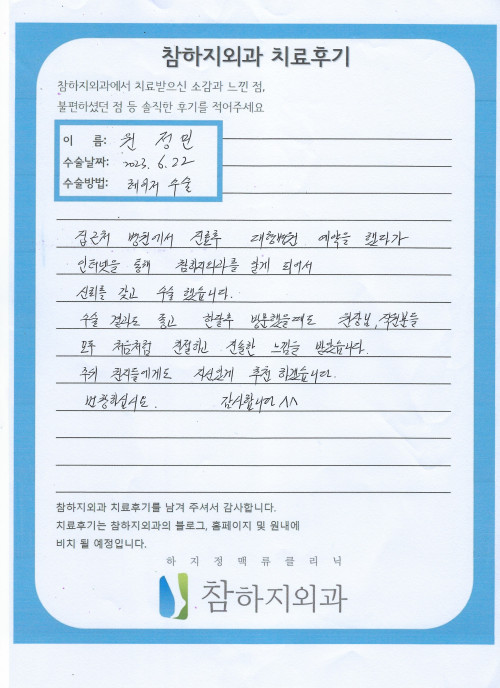 참하지외과 치료후기
참하지외과에서 치료받으신 소감과 느낀 점,
불편하셨던 점 등 솔직한 후기를 적어주세요
이 름: 원 정민
수술날짜: 2023. 6. 22
수술방법: 레이저 수술
집근처 병원에서 진료후 대학병원 예약을 했다가
인터넷을 통해 참하지외과를 알게 되어서
신뢰를 갖고 수술 했습니다.
수술 결과도 좋고 한달후 방문했을때도 원장님, 직원분들
모두 처음처럼 친절하고 진솔한 느낌을 받았습니다.
주위 환자들에게도 자신있게 추천 하겠습니다.
번창하십시요. 감사합니다 ^^
참하지외과 치료후기를 남겨 주셔서 감사합니다.
치료후기는 참하지외과의 블로그, 홈페이지 및 원내에
비치 될 예정입니다.
하지정맥류클리닉
참하지외과